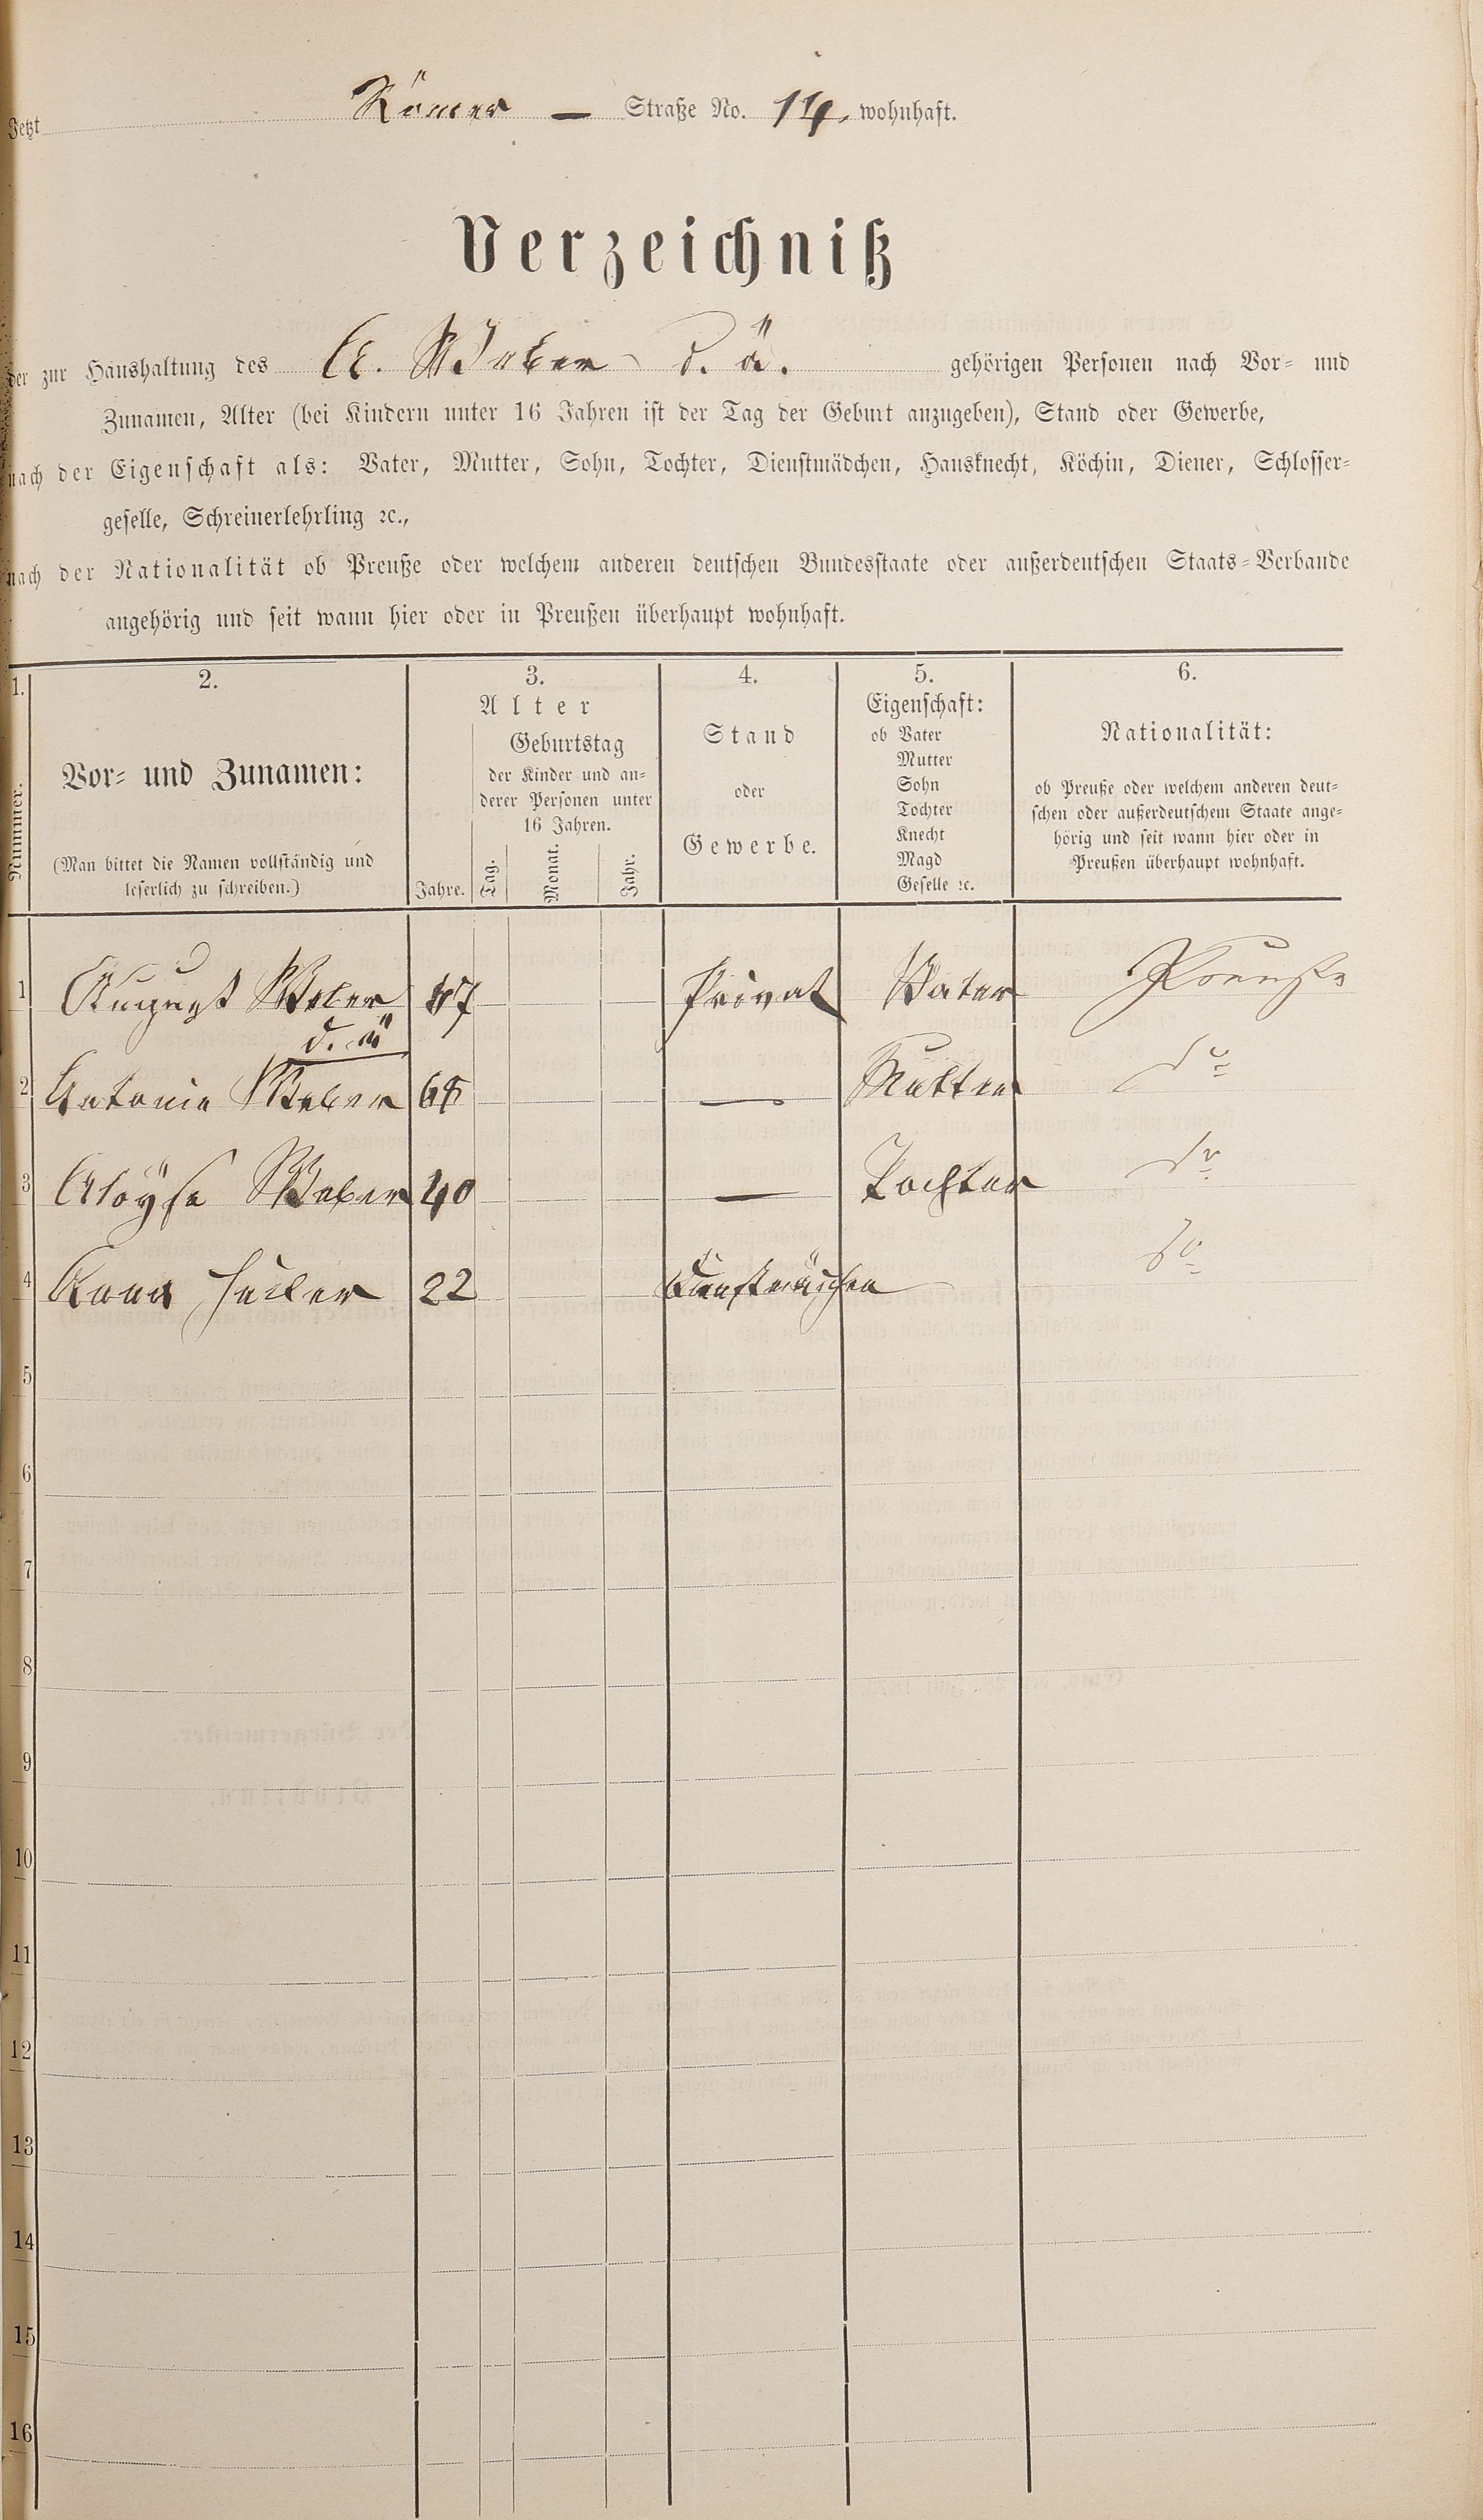 Jetzt Römer — Straße No. 14. wohnhaft.
Verzeichniß
der zur Haushaltung des A. Weber d. ä. gehörigen Personen nach Vor- und
Zunamen, Alter (bei Kindern unter 16 Jahren ist der Tag der Geburt anzugeben), Stand oder Gewerbe,
nach der Eigenschaft als: Vater, Mutter, Sohn, Tochter, Dienstmädchen, Hausknecht, Köchin, Diener, Schlosser-
geselle, Schreinerlehrling ꝛc.,
nach der Nationalität ob Preuße oder welchem anderen deutschen Bundesstaate oder außerdeutschen Staats-Verbande
angehörig und seit wann hier oder in Preußen überhaupt wohnhaft.
1.
Nummer.
2.
Vor- und Zunamen:
(Man bittet die Namen vollständig und
leserlich zu schreiben.)
3.
Alter
Jahre.
Geburtstag
der Kinder und an-
derer Personen unter
16 Jahren.
Tag.
Monat.
Jahr.
4.
Stand
oder
Gewerbe.
5.
Eigenschaft:
ob Vater
Mutter
Sohn
Tochter
Knecht
Magd
Geselle ꝛc.
6.
Nationalität:
ob Preuße oder welchem anderen deut-
schen oder außerdeutschem Staate ange-
hörig und seit wann hier oder in
Preußen überhaupt wohnhaft.
1 August Weber Privat Vater Preuße
d. ä
2 Antonie Weber — Mutter do
3 Aloÿse Weber 40 — Tochter do
4 Anna 22 Dienstmädchen do
5
6
7
8
9
10
11
12
13
14
15
16